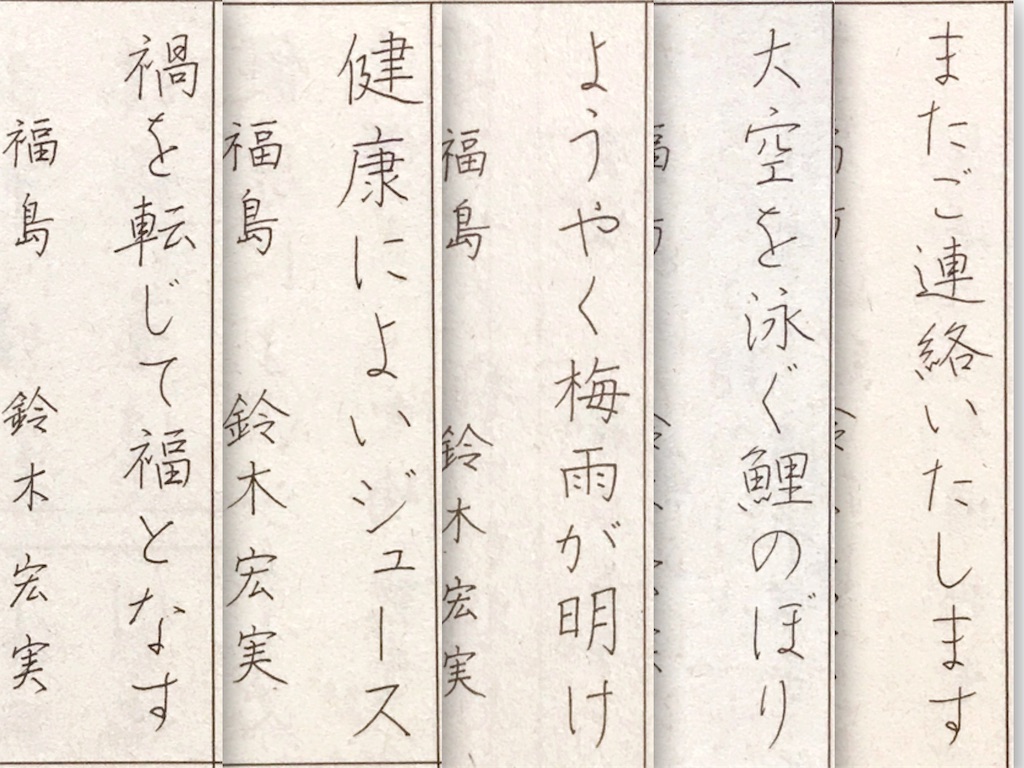 またご連絡いたします
大空を泳ぐ鯉のぼり
ようやく梅雨が明け
福島 鈴木宏実
健康によいジュース
福島 鈴木宏実
禍を転じて福となす
福島 鈴木宏実